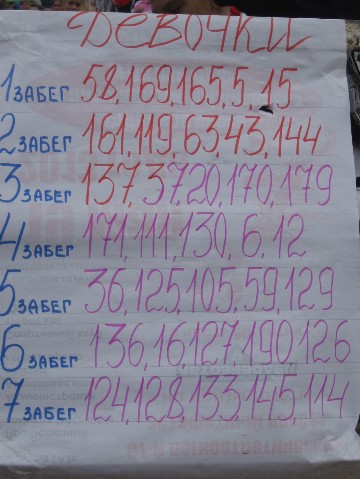 ДЕВОЧКИ
1 ЗАБЕГ 58, 169, 165, 5, 15
2 ЗАБЕГ 161, 119, 63, 43, 144
3 ЗАБЕГ 137, 37, 20, 170, 179
4 ЗАБЕГ 171, 111, 130, 6, 12
5 ЗАБЕГ 36, 125, 105, 59, 129
6 ЗАБЕГ 136, 16, 127, 190, 126
7 ЗАБЕГ 124, 128, 133, 145, 114